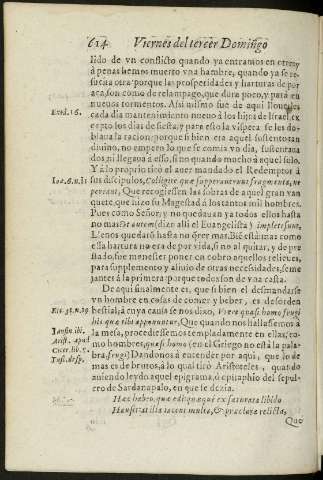 614 Viernes del tercer Domingo
lido de vn conflicto quando ya entramos en otro: y
à penas hemos muerto vna hambre, quando ya se re-
sucita otra: porque las prosperidades y harturas de por
aca, son como de relampago, que dura poco, y pàra en
nueuos tormentos. Assi mismo fue de aqui llouerles
Exod. 16.
cada dia mantenimiento nueuo à los hijos de Israel, ex
cepto los dias de fiesta, y para esso la vispera se les do-
blaua la racion: porque si bien era aquel sustento tan
diuino, no empero lo que se comia vn dia, sustentaua
dos, ni llegaua à esso, si no quando mucho à aquel solo.
Y à lo proprio tirò el auer mandado el Redemptor à
Ioa. 6. n. 12
sus discipulos, Colligite quæ superauerunt fragmenta, ne
pereant, Que recogiessen las sobras de aquel gran van
quete, que hizo su Magestad à los tantos mil hombres.
Pues como Señor, y no quedauan ya todos ellos hasta
no mas? autem (dize alli el Euangelista) impleti sunt,
Llenos quedarõ hasta no querer mas. Biẽ està: mas como
essa hartura no era de por vida, si no al quitar, y de pre
stado, fue menester poner en cobro aquellos relieues,
para suplemento y aliuio de otras necessidades, seme
jantes à la primera: porque todos son de vna casta.
De aqui finalmente es, que si bien el desmandarse
vn hombre en cosas de comer y beber, es desorden
bestial; à cuya causa se nos dixo, Vtere quasi homo frugi
his quæ tibi apponuntur, Que quando nos hallassemos à
la mesa, procediessemos templadamente en ellas, co-
mo hombres, quasi homo (en el Griego no està la pala-
bra, frugi) Dandonos à entender por aqui, que lo de
mas es de brutos, à lo qual tirò Aristoteles, quando
auiendo leydo aquel epigrama, ò epitaphio del sepul-
cro de Sardanapalo, en que se dezia.
Hæc habeo, quæ edi, quæque exsaturata libido
Hausit: at illa iacent multa, & præclara relicta,
Que